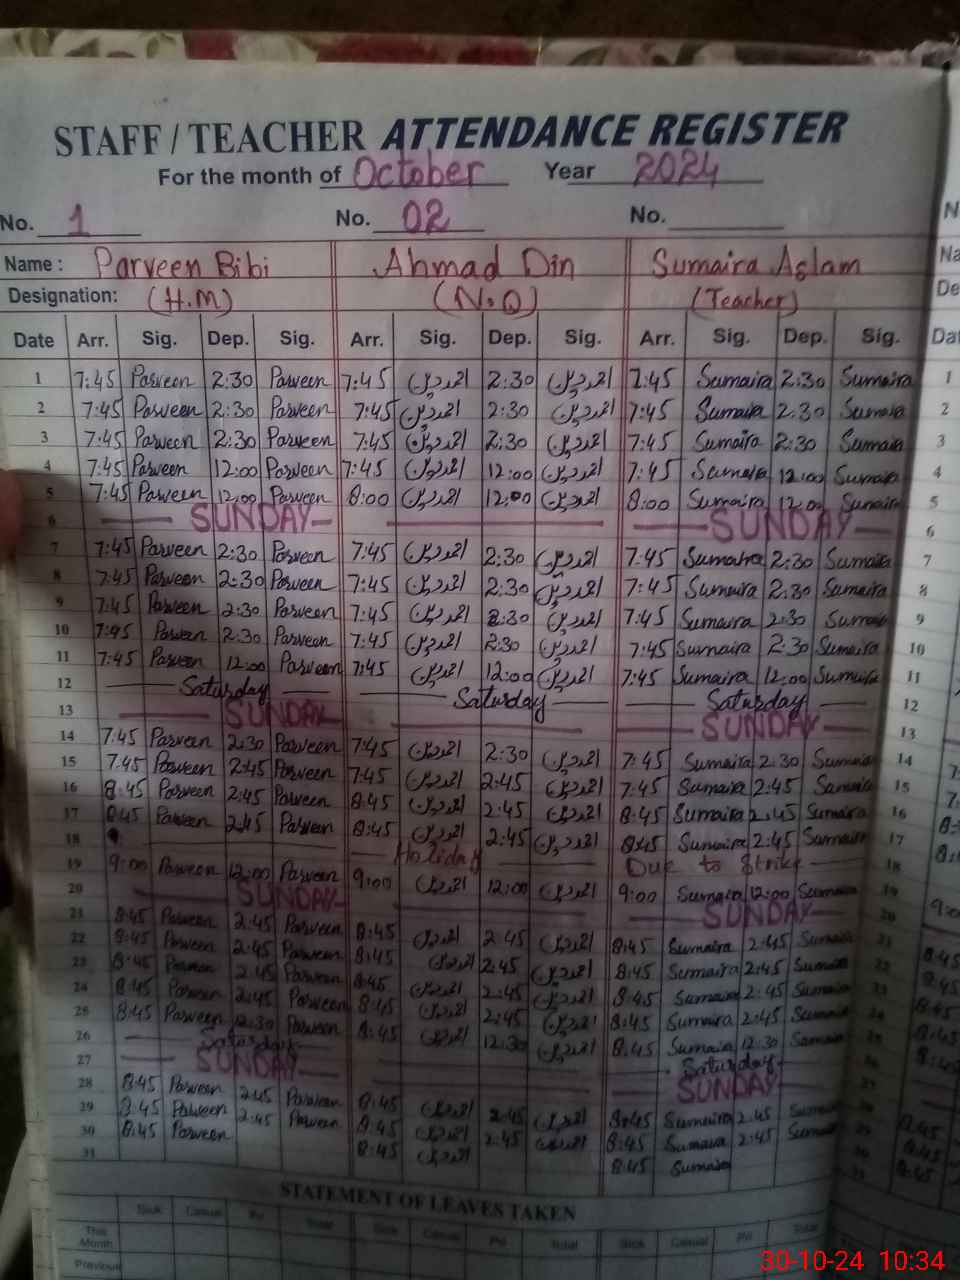 STAFF / TEACHER ATTENDANCE REGISTER
For the month of October Year 2024
No. 1 No. 02 No.
Name : Parveen Bibi Ahmad Din Sumaira Aslam
Designation: (H.M) (N.Q) (Teacher)
Date Arr. Sig. Dep. Sig. Arr. Sig. Dep. Sig. Arr. Sig. Dep. Sig.
1 7:45 Parveen 2:30 Parveen 7:45 احمد دین 2:30 احمد دین 7:45 Sumaira 2:30 Sumaira 1
2 7:45 Parveen 2:30 Parveen 7:45 احمد دین 2:30 احمد دین 7:45 Sumaira 2:30 Sumaira 2
3 7:45 Parveen 2:30 Parveen 7:45 احمد دین 2:30 احمد دین 7:45 Sumaira 2:30 Sumaira 3
4 7:45 Parveen 12:00 Parveen 7:45 احمد دین 12:00 احمد دین 7:45 Sumaira 12:00 Sumaira 4
5 7:45 Parveen 12:00 Parveen 8:00 احمد دین 12:00 احمد دین 8:00 Sumaira 12:00 Sumaira 5
6 SUNDAY SUNDAY 6
7 7:45 Parveen 2:30 Parveen 7:45 احمد دین 2:30 احمد دین 7:45 Sumaira 2:30 Sumaira 7
8 7:45 Parveen 2:30 Parveen 7:45 احمد دین 2:30 احمد دین 7:45 Sumaira 2:30 Sumaira 8
9 7:45 Parveen 2:30 Parveen 7:45 احمد دین 2:30 احمد دین 7:45 Sumaira 2:30 Sumaira 9
10 7:45 Parveen 2:30 Parveen 7:45 احمد دین 2:30 احمد دین 7:45 Sumaira 2:30 Sumaira 10
11 7:45 Parveen 12:00 Parveen 7:45 احمد دین 12:00 احمد دین 7:45 Sumaira 12:00 Sumaira 11
12 Saturday Saturday Saturday 12
13 SUNDAY SUNDAY 13
14 7:45 Parveen 2:30 Parveen 7:45 احمد دین 2:30 احمد دین 7:45 Sumaira 2:30 Sumaira 14
15 7:45 Parveen 2:45 Parveen 7:45 احمد دین 2:45 احمد دین 7:45 Sumaira 2:45 Sumaira 15
16 8:45 Parveen 2:45 Parveen 8:45 احمد دین 2:45 احمد دین 8:45 Sumaira 2:45 Sumaira 16
17 8:45 Parveen 2:45 Parveen 8:45 احمد دین 2:45 احمد دین 8:45 Sumaira 2:45 Sumaira 17
18 Holiday Due to Strike 18
19 9:00 Parveen 12:00 Parveen 9:00 احمد دین 12:00 احمد دین 9:00 Sumaira 12:00 Sumaira 19
20 SUNDAY SUNDAY 20
21 8:45 Parveen 2:45 Parveen 8:45 احمد دین 2:45 احمد دین 8:45 Sumaira 2:45 Sumaira 21
22 8:45 Parveen 2:45 Parveen 8:45 احمد دین 2:45 احمد دین 8:45 Sumaira 2:45 Sumaira 22
23 8:45 Parveen 2:45 Parveen 8:45 احمد دین 2:45 احمد دین 8:45 Sumaira 2:45 Sumaira
24 8:45 Parveen 2:45 Parveen 8:45 احمد دین 2:45 احمد دین 8:45 Sumaira 2:45 Sumaira
25 8:45 Parveen 12:30 Parveen 8:45 احمد دین 12:30 احمد دین 8:45 Sumaira 12:30 Sumaira
26 Saturday Saturday
27 SUNDAY SUNDAY
28 8:45 Parveen 2:45 Parveen 8:45 احمد دین 2:45 احمد دین 8:45 Sumaira 2:45 Sumaira
29 8:45 Parveen 2:45 Parveen 8:45 احمد دین 2:45 احمد دین 8:45 Sumaira 2:45 Sumaira
30 8:45 Parveen 8:45 احمد دین 8:45 Sumaira
31
STATEMENT OF LEAVES TAKEN
Sick Casual Pri Total Sick Casual Pri Total Sick Casual Pri Total
This Month
Previous
30-10-24 10:34